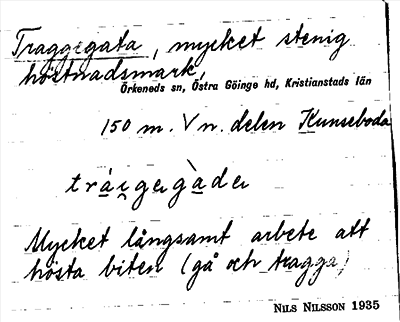 Traggegata, mycket stenig
höstnadsmark,
Örkeneds sn, Östra Göinge hd, Kristianstads län
150 m. V n. delen Kunseboda
Mycket långsamt arbete att
hösta biten (gå och tragga)
NILS NILSSON 1935